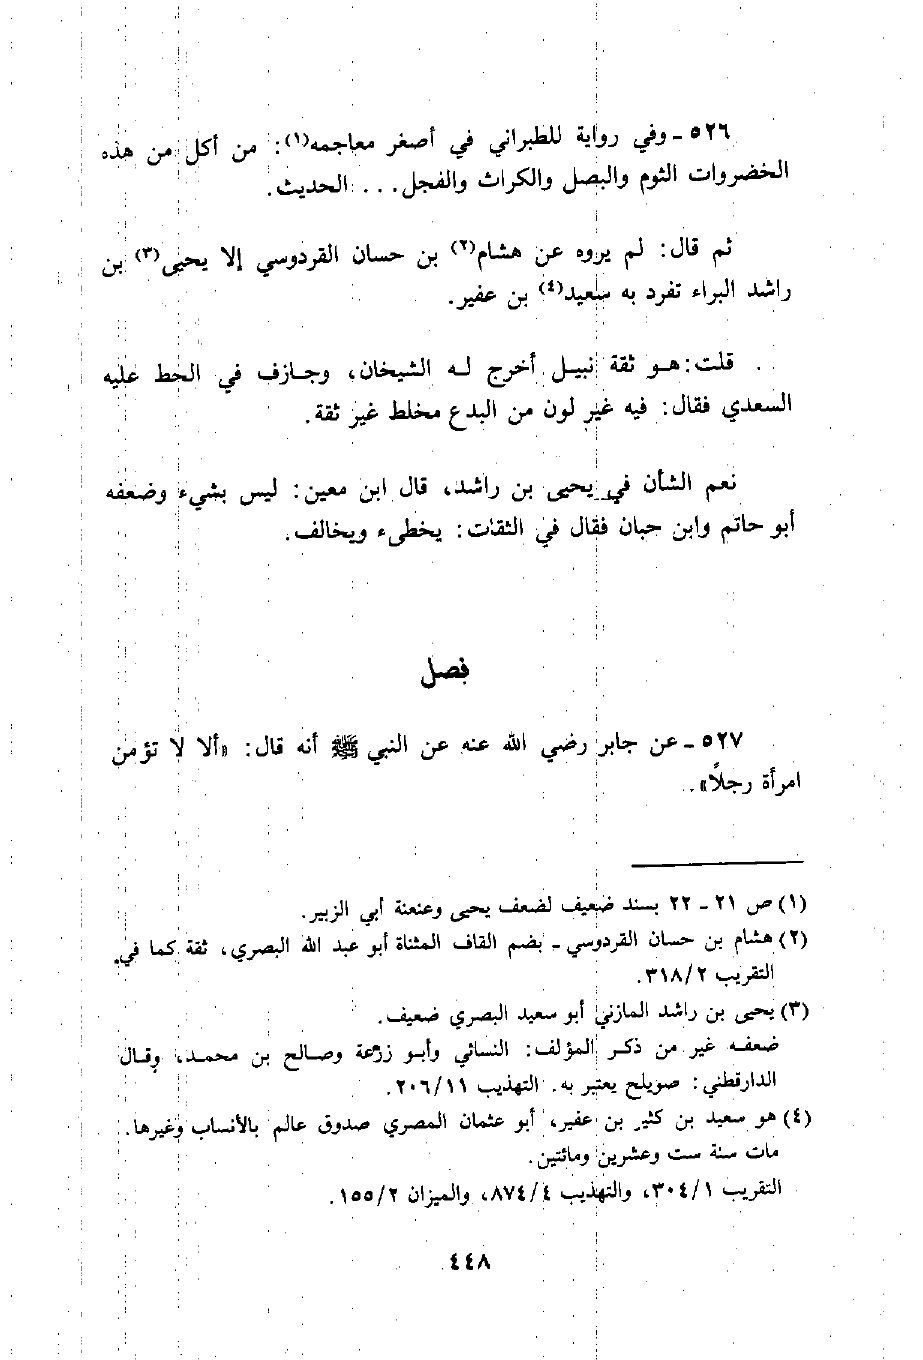 ٥٢٦ ـ وفي رواية للطبراني في أصغر معاجمه(١): من أكل من هذه
الخضروات الثوم والبصل والكراث والفجل... الحديث.
ثم قال: لم يروه عن هشام(٢) بن حسان القردوسي إلا يحيى(٣) بن
راشد البراء تفرد به سعيد(٤) بن عفير.
قلت: هو ثقة نبيل أخرج له الشيخان، وجازف في الحط عليه
السعدي فقال: فيه غير لون من البدع مخلط غير ثقة.
نعم الشأن في يحيى بن راشد، قال ابن معين: ليس بشيء وضعفه
أبو حاتم وابن حبان فقال في الثقات: يخطىء ويخالف.
فصل
٥٢٧ ـ عن جابر رضي الله عنه عن النبي ﷺ أنه قال: «ألا لا تؤمن
امرأة رجلاً».
(١) ص ٢١ ـ ٢٢ بسند ضعيف لضعف يحيى وعنعنة أبي الزبير.
(٢) هشام بن حسان القردوسي ـ بضم القاف المثناة أبو عبد الله البصري، ثقة كما في
التقريب ٣١٨/٢.
(٣) يحيى بن راشد المازني أبو سعيد البصري ضعيف.
ضعفه غير من ذكر المؤلف: النسائي وأبو زرعة وصالح بن محمد، وقال
الدارقطني: صويلح يعتبر به. التهذيب ٢٠٦/١١.
(٤) هو سعيد بن كثير بن عفير، أبو عثمان المصري صدوق عالم بالأنساب وغيرها.
مات سنة ست وعشرين ومائتين.
التقريب ٣٠٤/١، والتهذيب ٨٧٤/٤، والميزان ١٥٥/٢.
٤٤٨